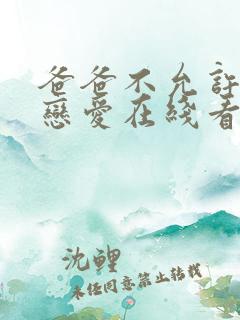 爸爸不允許
戀愛在綫看
沈鯉
未经同意禁止转载